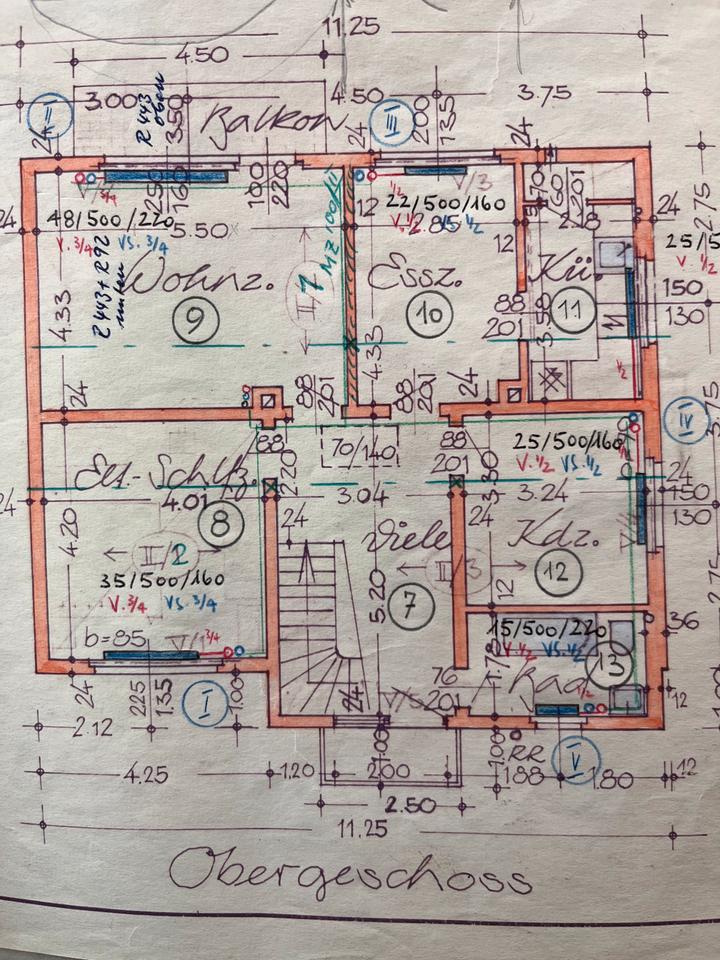 11.25
4.50
3.00
R 443 oben
350
Balkon
4.50
200
135
3.75
III
24
24
24
250
160
100
220
V/3
60
201
2.18
24
2.75
48/500/220
V. 3/4 VS. 3/4
5.50
12
22/500/160
V. 1/2 VS. 1/2
2.85
12
MZ 100/Kü
R 443 + R 92 unten
Wohnz.
9
II/1
Essz.
10
Kü.
11
25/5
V 1/2
150
130
4.33
4.33
88
201
3.58
24
88
201
88
201
24
1/2
IV
88
2.20
70/140
88
201
25/500/160
V. 1/2 VS. 1/2
Elt.-Schlfz.
4.01
8
3.04
3.30
3.24
24
150
130
3.75
24
24
4.20
II/2
35/500/160
V. 3/4 VS. 3/4
Diele
II/3
7
5.20
Kdz.
12
12
2.75
b=85
V/1 3/4
15/500/220
V. 1/2 VS. 1/2
13
36
Bad
1/2
76
201
24
12
24
225
135
I
1.00
2.12
1.00
1.00
RR
V
4.25
1.20
2.00
188
1.80
12
2.50
11.25
Obergeschoss